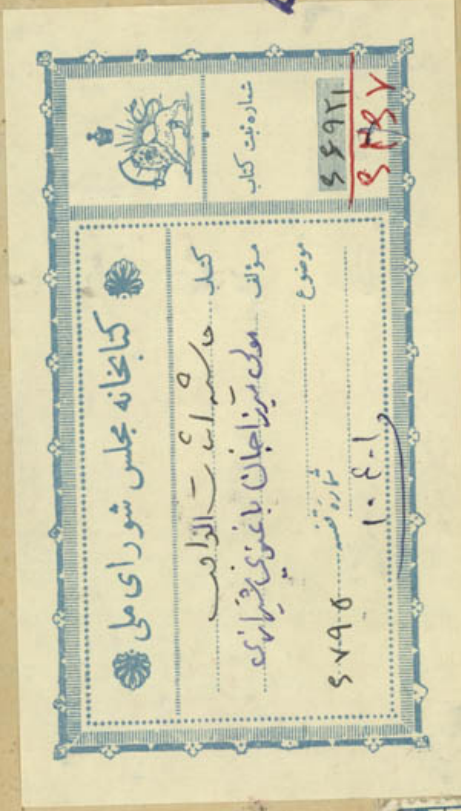 کتابخانه مجلس شورای ملی
کتاب حاشیه اثبات الواجب
مؤلف مولی میرزاجان باغنوی شیرازی
موضوع
شماره قفسه ۶۷۹۵
۱۰۶۰۱
شماره ثبت کتاب
۶۶۹۲۱